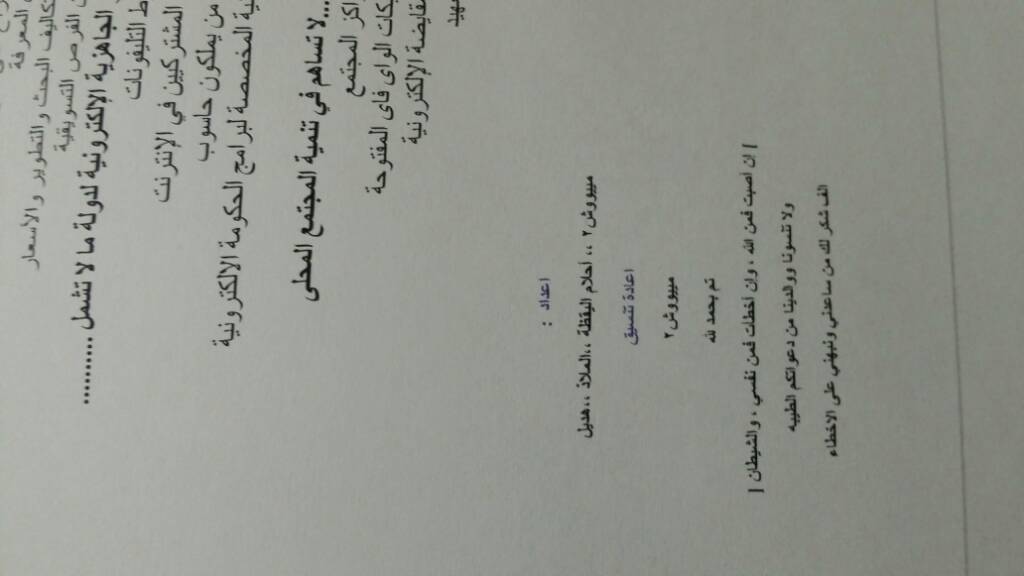 كاليف البحث والتطوير والأسعار
المعرفة
الفرص التسويقية
الجاهزية الإلكترونية لدولة ما لا تشمل ..........
ط التليفونات
المشتركين في الإنترنت
من يملكون حاسوب
ية المخصصة لبرامج الحكومة الالكترونية
...لا تساهم في تنمية المجتمع المحلى
اكز المجتمع
كات الواى فاى المفتوحة
مقايضة الإلكترونية
مهيد
اعداد :
ميبوووش٢ ،، احلام اليقظة ،،الملاذ ،،هديل
اعادة تنسيق
ميبوووش٢
تم بحمد لله
| إن أصبت فمن الله ، وإن أخطأت فمن نفسي ، والشيطان |
ولا تنسونا ووالدينا من دعواتكم الطيبه
الف شكر لك من ساعدني ونبهني على الاخطاء